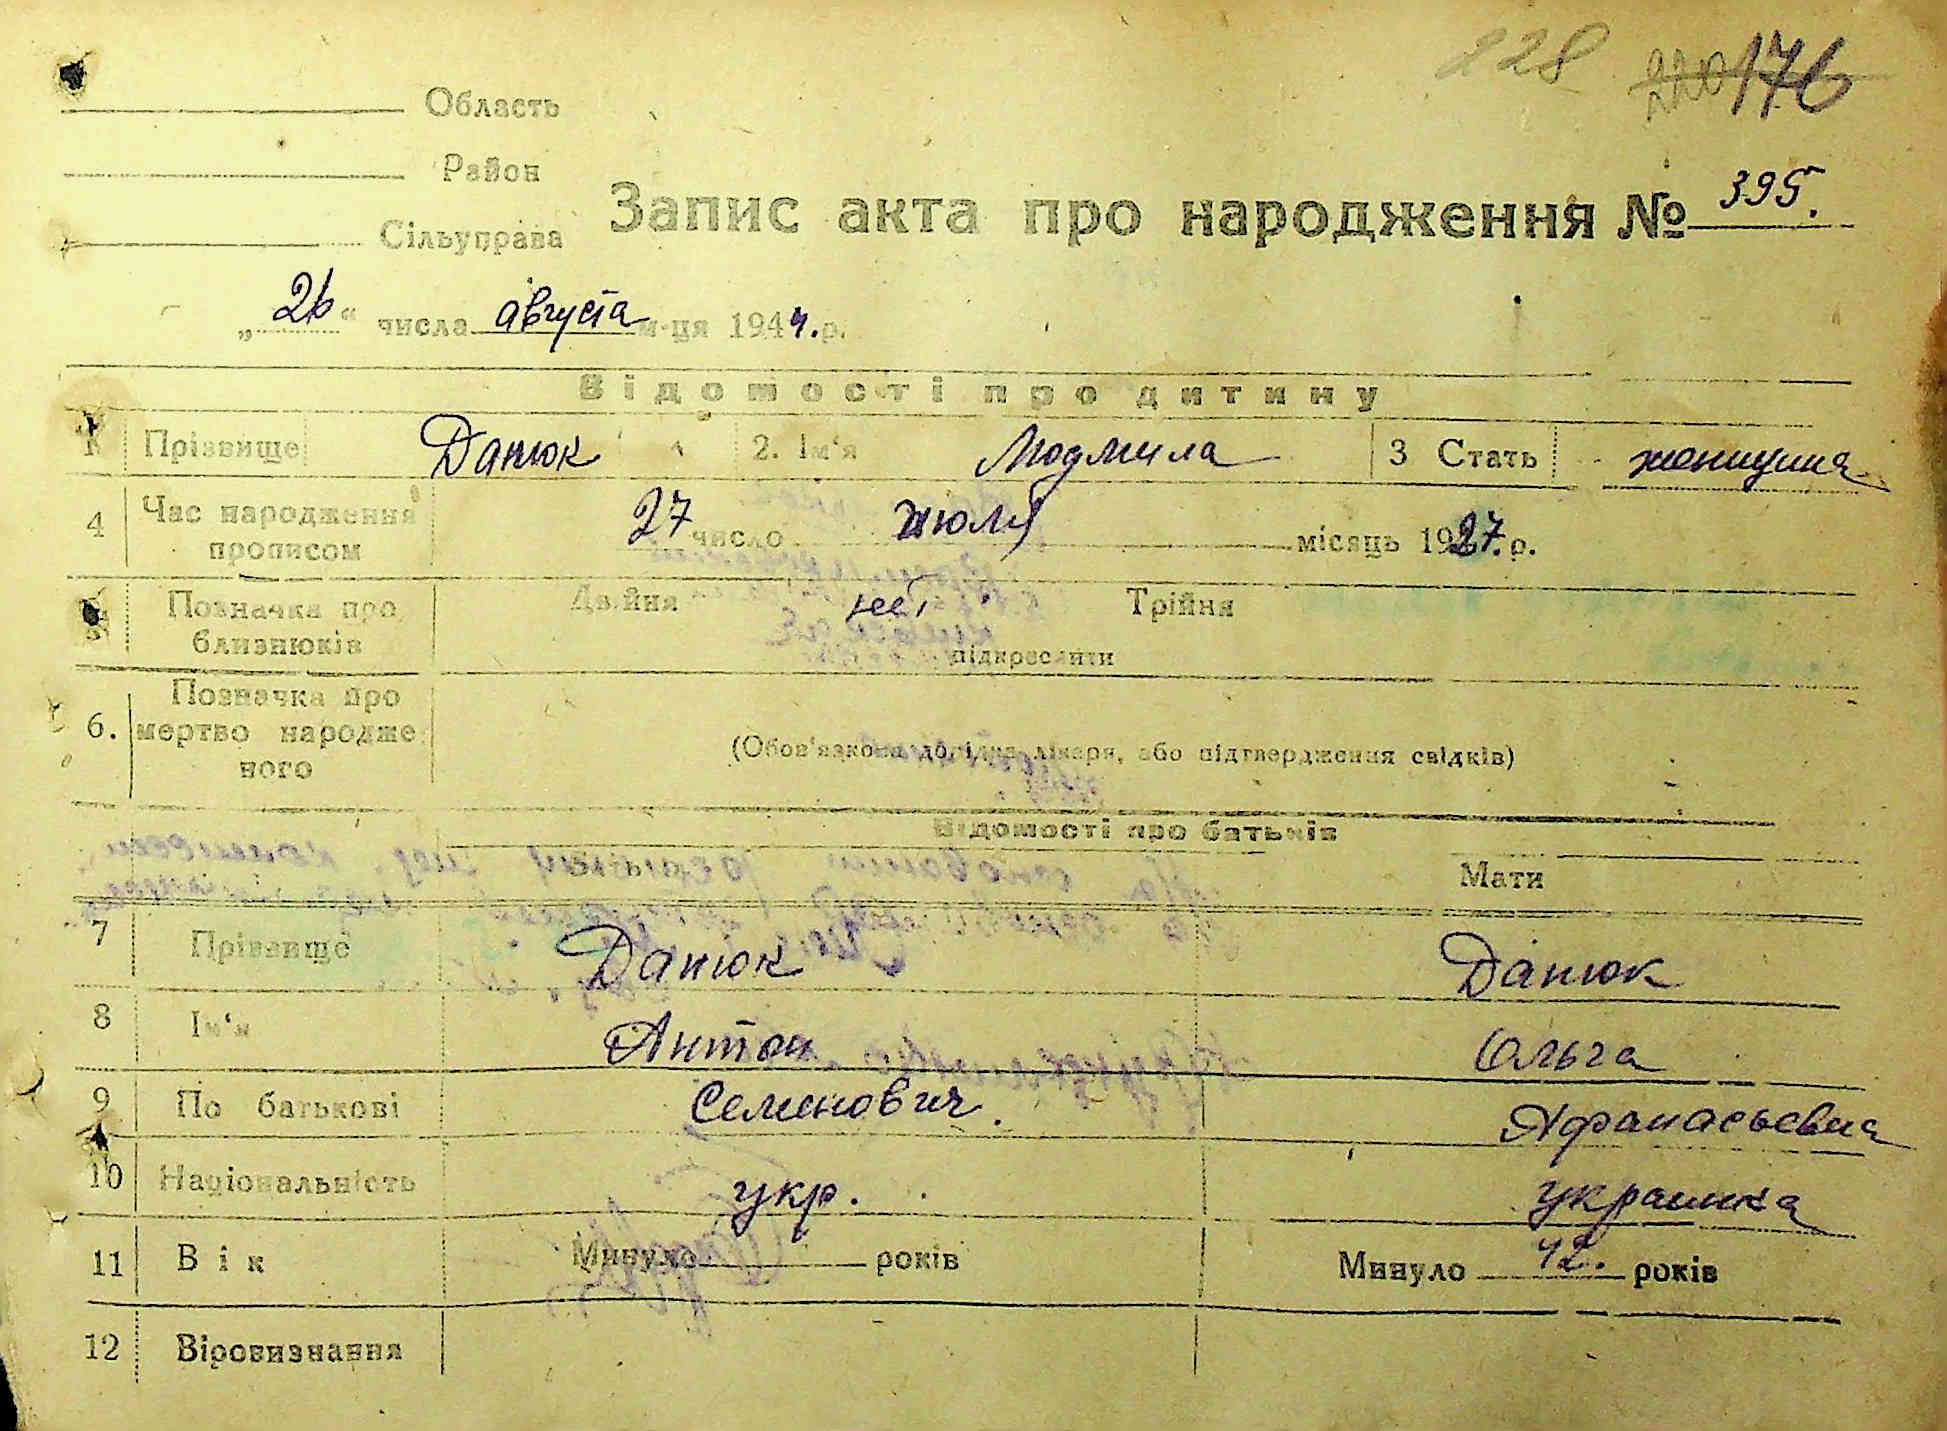 228 220 176
Область
Район
Сільуправа
Запис акта про народження № 395.
„26“ числа августа м-ця 1944. р.
Відомості про дитину
1 Прізвище Данюк 2. Ім'я Людмила 3 Стать женщина
4 Час народження прописом 27 число июля місяць 1927. р.
5 Позначка про близнюків Двійня нет Трійня
підкреслити
6. Позначка про мертво народженого
(Обов'язкова довідка лікаря, або підтвердження свідків)
Відомості про батьків
Батько Мати
7 Прізвище Данюк Данюк
8 Ім'я Антон Ольга
9 По батькові Семенович. Афанасьевна
10 Національність укр. украинка
11 Вік Минуло років Минуло 42. років
12 Віровизнання